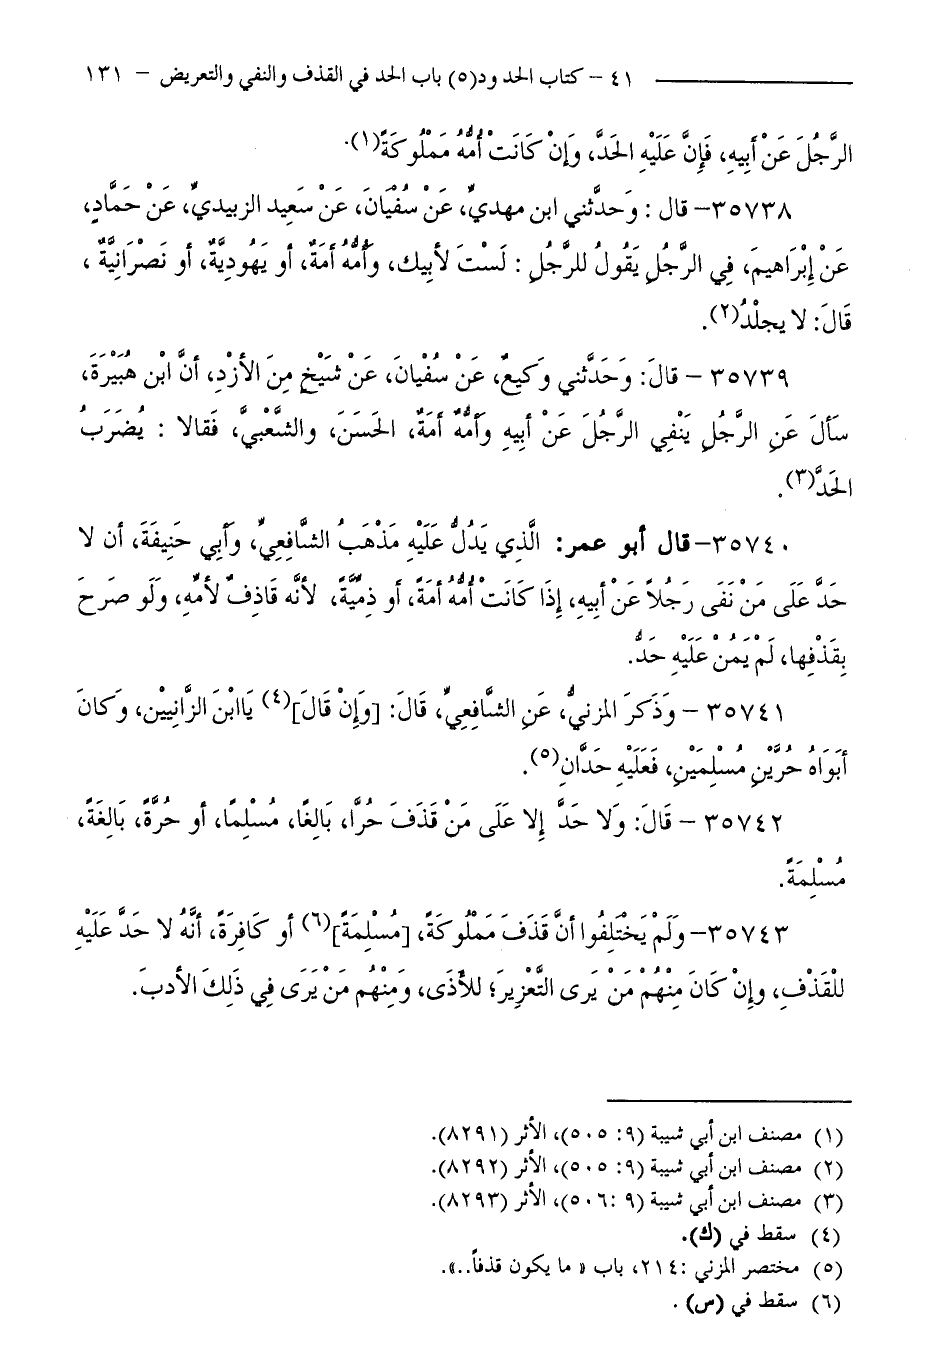 ٤١ – كتاب الحدود(٥) باب الحد في القذف والنفي والتعريض – ١٣١
الرَّجُلَ عَنْ أَبِيهِ، فَإِنَّ عَلَيْهِ الحَدَّ، وَإِنْ كَانَتْ أُمُّهُ مَمْلُوكَةً(١).
٣٥٧٣٨– قال : وَحَدثَّني ابن مهديٍّ، عَنْ سُفْيَانَ، عَنْ سَعِيد الزبيديِّ، عَنْ حَمَّادٍ،
عَنْ إِبْرَاهِيمَ، فِي الرَّجُلِ يَقُولُ للرَّجُلِ : لَسْتَ لأَبِيك، وَأُمُّهُ أَمَةٌ، أو يَهُودِيَّةٌ، أو نَصْرَانِيَّةٌ ،
قَالَ: لا يجلْدُ(٢).
٣٥٧٣٩ – قالَ: وَحَدَّثَني وَكِيعٌ، عَنْ سُفْيَانَ، عَنْ شَيْخٍ مِنَ الأَزْدِ، أنَّ ابْن هُبَيْرَةَ،
سَأَلَ عَنِ الرَّجُلِ يَنْفِي الرَّجُلَ عَنْ أَبِيهِ وَأُمُّهُ أَمَةٌ، الحَسَنَ، والشَّعْبِيَّ، فَقالا : يُضرَبُ
الحَدَّ(٣).
٣٥٧٤٠–قال أبو عمر: الَّذِي يَدُلُّ عَلَيْهِ مَذْهَبُ الشَّافِعِيِّ، وَأَبِي حَنِيفَةَ، أن لا
حَدَّ عَلَى مَنْ نَفَى رَجُلاً عَنْ أَبِيهِ، إِذَا كَانَتْ أُمُّهُ أَمَةً، أو ذِمِّيَّةً، لأنَّه قَاذِفٌ لأمِّهِ، وَلَو صَرحَ
بِقَذْفِها، لَمْ يَمُنْ عَلَيْهِ حَدٌّ.
٣٥٧٤١ – وَذَكَرَ المزنيُّ، عَنِ الشَّافِعِيِّ، قَالَ: [وَإِنْ قَالَ](٤) يَاابْنَ الزَّانِيَيْن، وَكَانَ
أَبَوَاهُ حُرَّيْنِ مُسْلِمَيْنِ، فَعَلَيْهِ حَدَّانِ(٥).
٣٥٧٤٢ – قَالَ: وَلا حَدَّ إِلا عَلَى مَنْ قَذَفَ حُرًّا، بَالِغًا، مُسْلِمًا، أو حُرَّةً، بَالِغَةً،
مُسْلِمَةً.
٣٥٧٤٣– وَلَمْ يَخْتَلِفُوا أَنَّ قَذَفَ مَمْلُوكَةً، [مُسْلِمَةً](٦) أو كَافِرَةً، أَنَّهُ لا حَدَّ عَلَيْهِ
للْقَذْفِ، وإِنْ كَانَ مِنْهُمْ مَنْ يَرى التَّعْزِيرَ؛ للأَذَى، ومِنْهُم مَنْ يَرَى فِي ذَلِكَ الأدبَ.
(١) مصنف ابن أبي شيبة (٩: ٥٠٥)، الأثر (٨٢٩١).
(٢) مصنف ابن أبي شيبة (٩: ٥٠٥)، الأثر (٨٢٩٢).
(٣) مصنف ابن أبي شيبة (٩ :٥٠٦)، الأثر (٨٢٩٣).
(٤) سقط في (ك).
(٥) مختصر المزني :٢١٤، باب « ما يكون قذفاً..».
(٦) سقط في (س) .